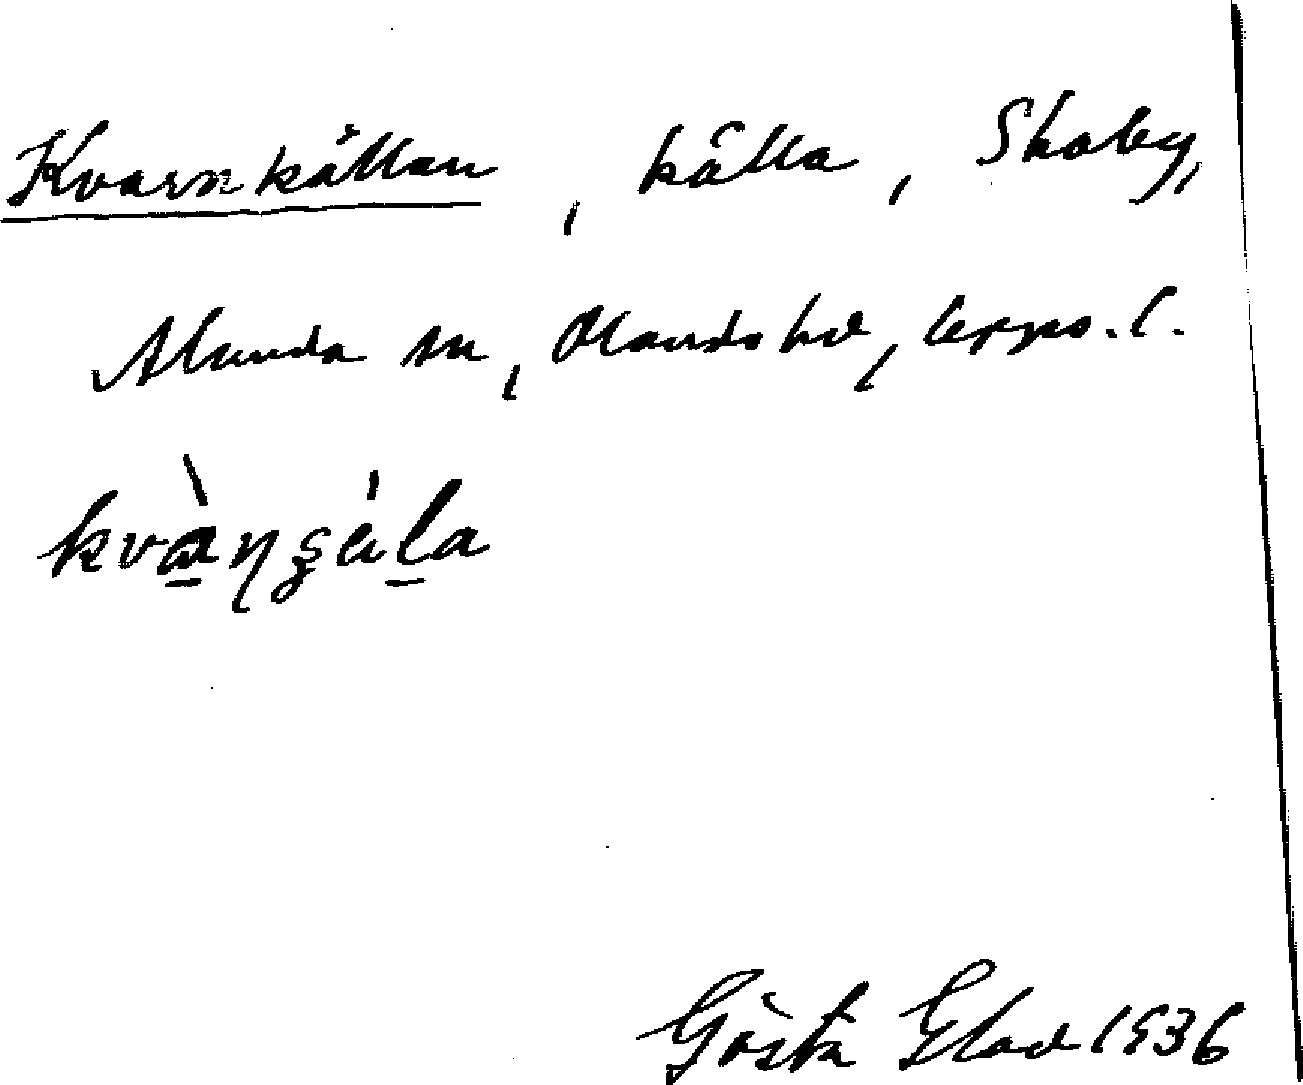 Kvarnkällan, källa, Skoby,
Alunda sn, Olands hd, Upps. l.
kvàŋʂäla
Gösta Elad 1936